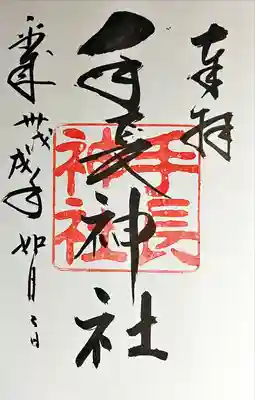 奉拝
手長神社
手長神社
平成卅戌戌年如月二日